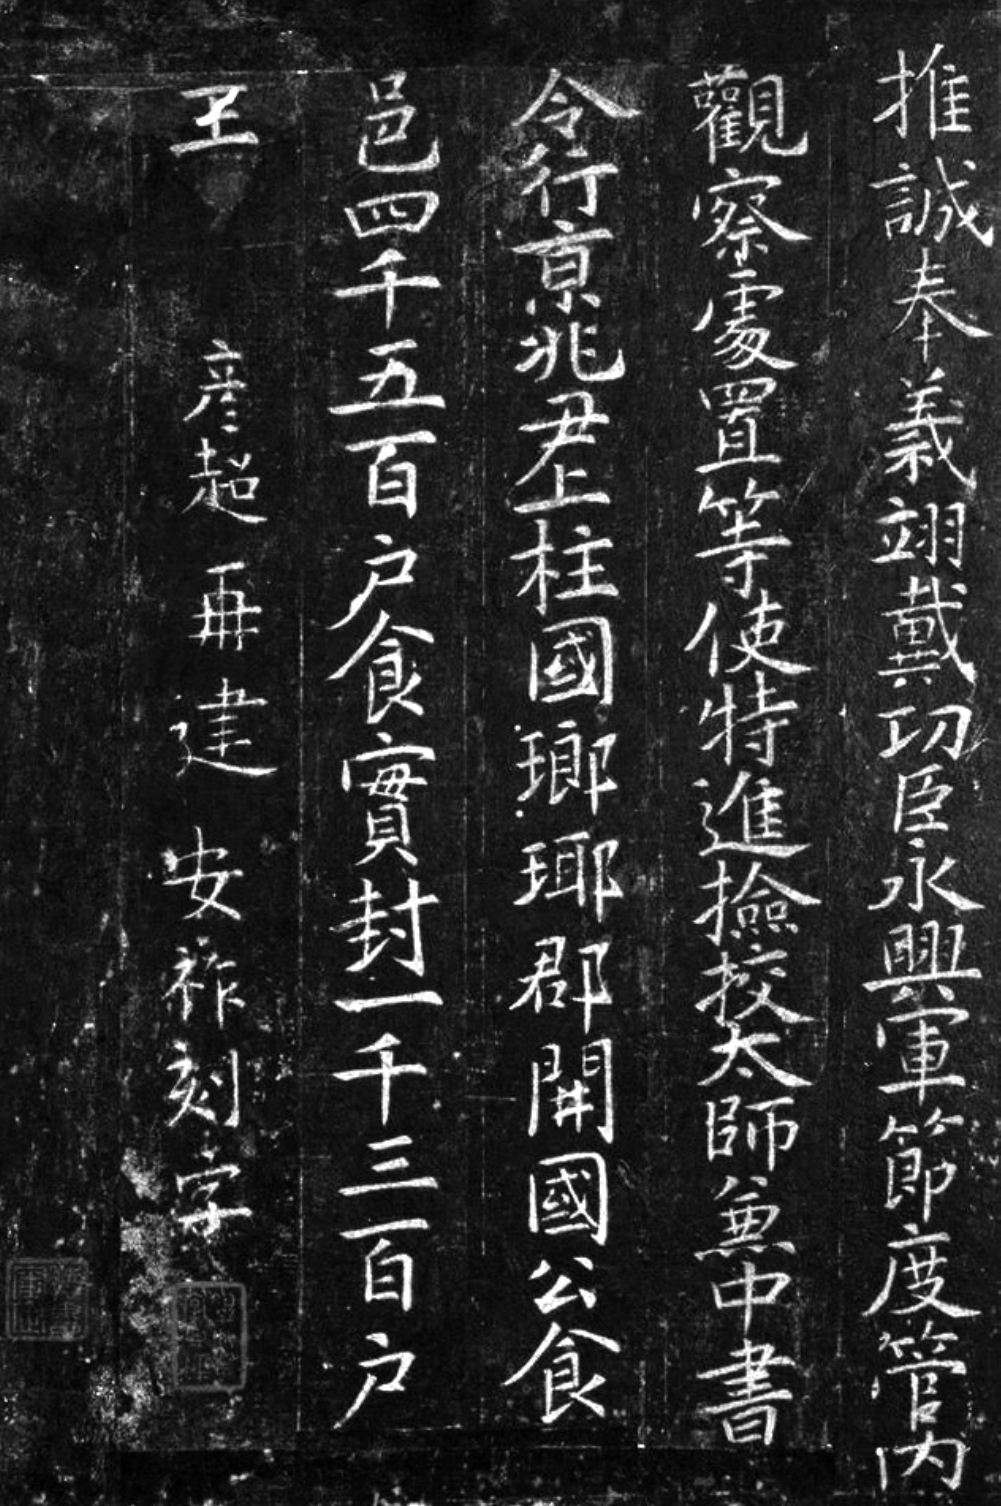 推誠奉義翊戴功臣永興軍節度管内
觀察處置等使特進撿挍太師兼中書
令行京兆尹上柱國瑯瑘郡開國公食
邑四千五百户食實封一千三百户
王 彦超 再建 安祚刻字